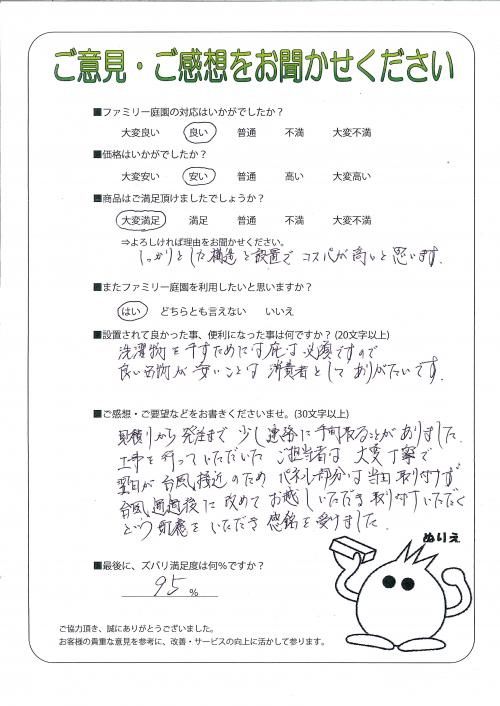 ご意見・ご感想をお聞かせください
■ファミリー庭園の対応はいかがでしたか？
大変良い 良い 普通 不満 大変不満
■価格はいかがでしたか？
大変安い 安い 普通 高い 大変高い
■商品はご満足頂けましたでしょうか？
大変満足 満足 普通 不満 大変不満
⇒よろしければ理由をお聞かせください。
しっかりとした構造と設置で コスパが高いと思います。
■またファミリー庭園を利用したいと思いますか？
はい どちらとも言えない いいえ
■設置されて良かった事、便利になった事は何ですか？(20文字以上)
洗濯物を干すためには庇は必須ですので
良い品物が安いことは 消費者として ありがたいです。
■ご感想・ご要望などをお書きくださいませ。(30文字以上)
見積りから発注まで 少し連絡に手間取ることがありました。
工事を行っていただいた ご担当者は 大変丁寧で
翌日が台風接近のため パネル部分は当日取り付けず
台風通過後に改めてお越しいただき取り付けいただく
という配慮をいただき 感銘を受けました。
ぬりえ
■最後に、ズバリ満足度は何％ですか？
95 %
ご協力頂き、誠にありがとうございました。
お客様の貴重な意見を参考に、改善・サービスの向上に活かして参ります。